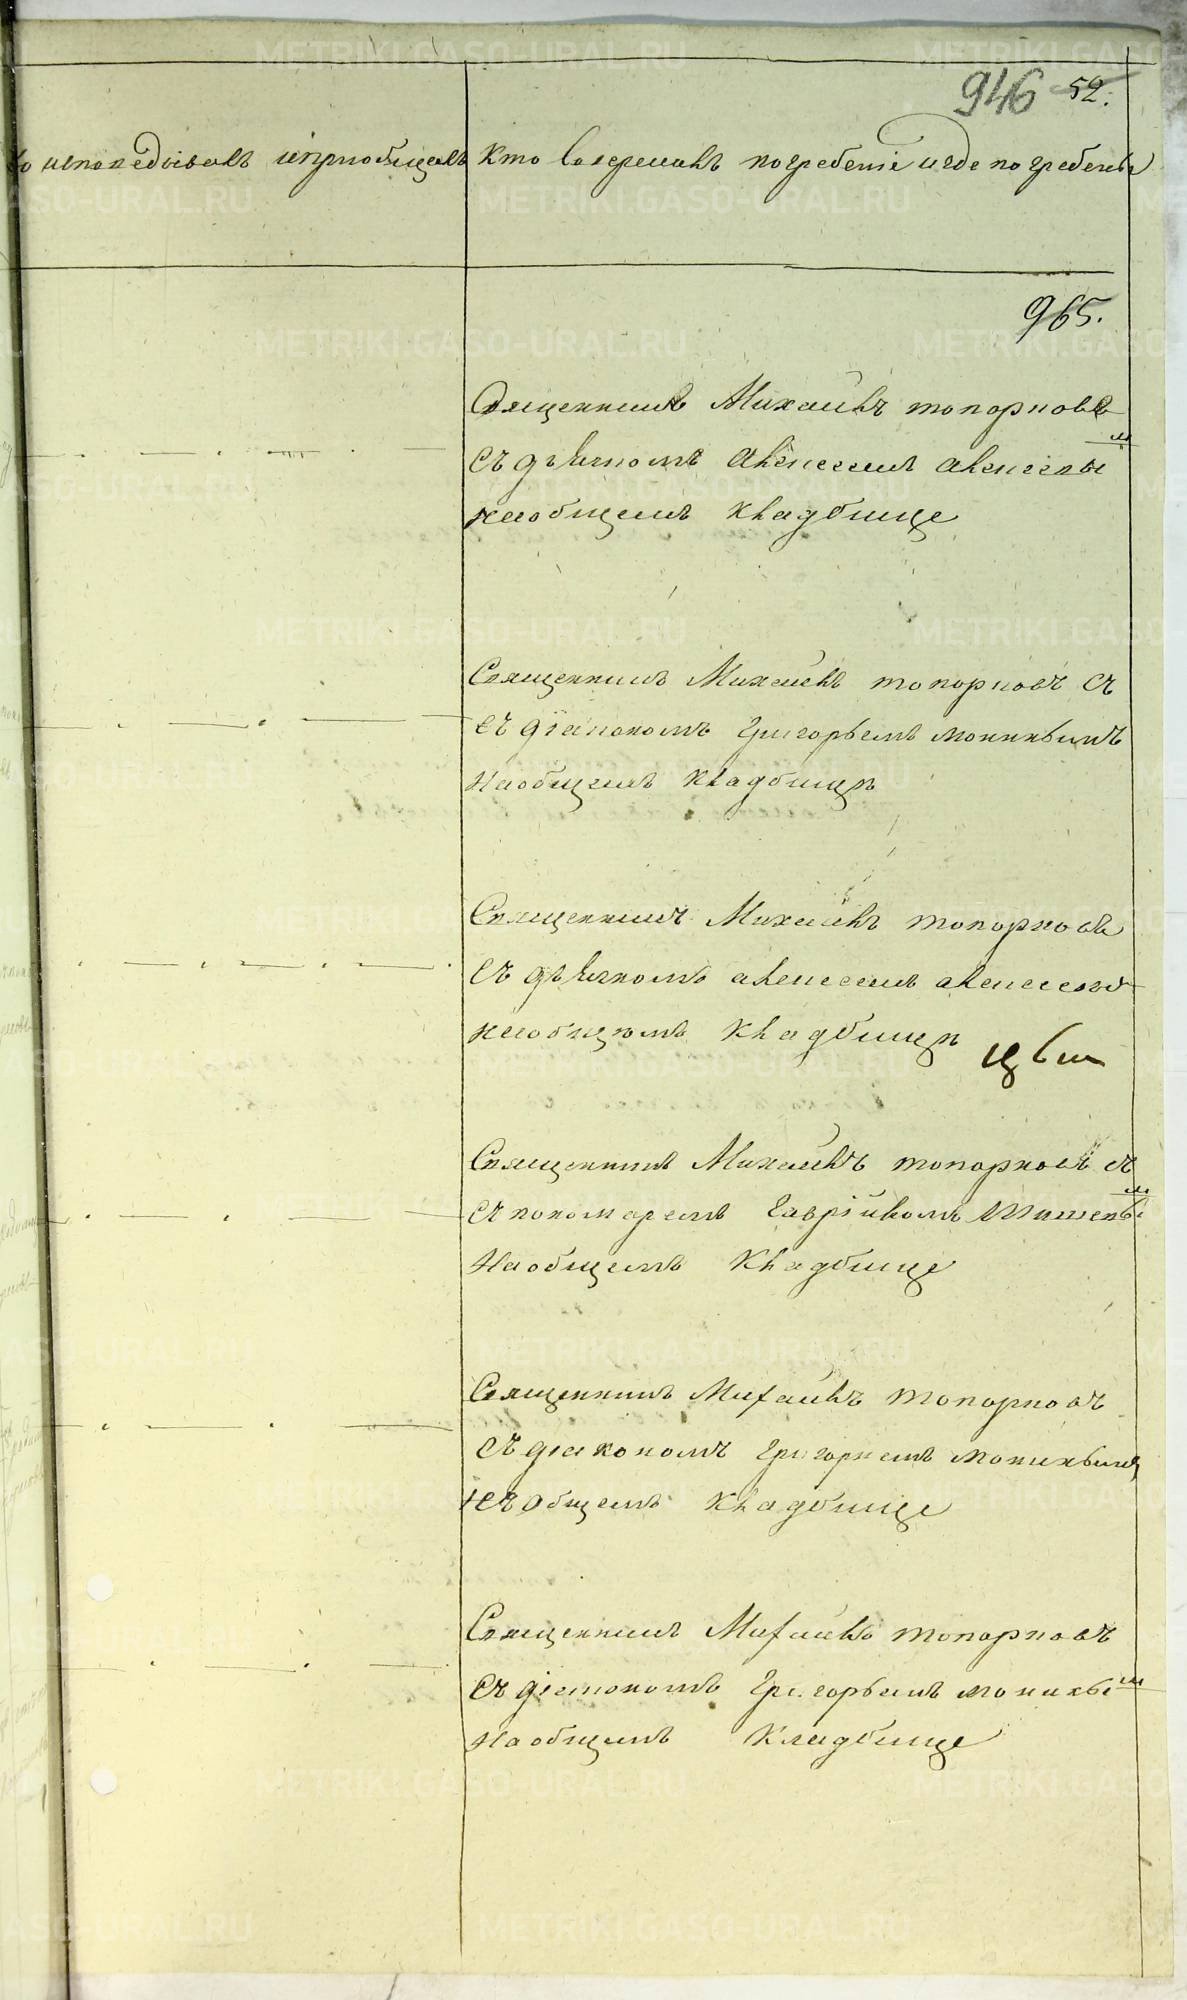 946 52.
исповедывалъ ипрiобщалъ Кто Совершалъ погребенiе игде погребены
965.
Священникъ Михаилъ топорковъ
Съ дьячкомъ Алексеемъ Алексеевы м
наобщемъ кладбище
Священникъ Михаилъ топорковъ съ
съ дiакономъ Григорьемъ мокинымъ
Наобщемъ кладбищѣ
Священникъ Михаилъ топорковъ
Съ дьячкомъ алексеемъ
наобщемъ кладбищѣ
Священникъ Михаилъ топорковъ съ
съ пономаремъ Гаврiиломъ
Наобщемъ Кладбище
Священникъ Михаилъ топорковъ
Съ дiакономъ григорiемъ
на общемъ кладбище
Священникъ Михаилъ топорковъ
Съ дiакономъ Григорьемъ
Наобщемъ Кладбище